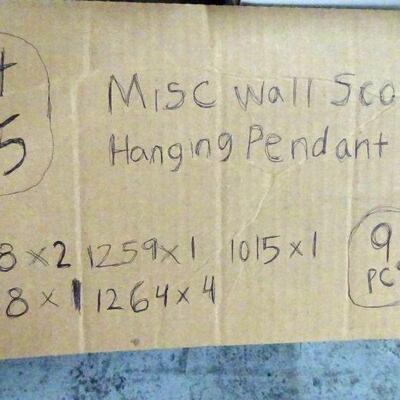 5
Misc Wall Sco
Hanging Pendant
8 x 2 1259 x 1 1015 x 1
8 x 1 1264 x 4
9
PC